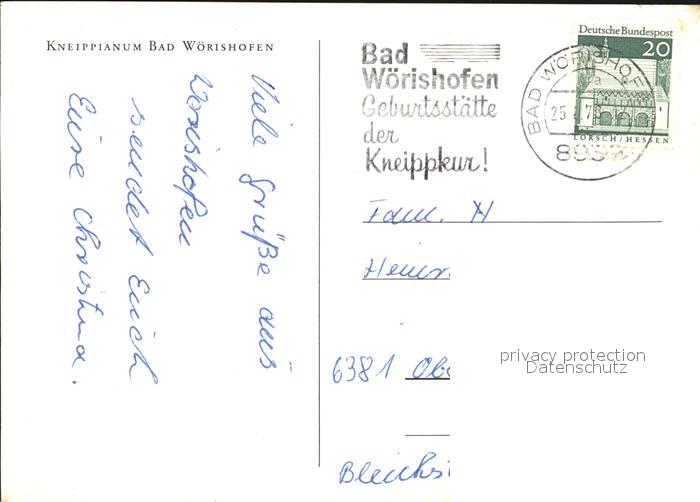 KNEIPPIANUM BAD WÖRISHOFEN
Viele Grüße aus
Wörishofen
sendet Euch
Eure Christina.
Bad
Wörishofen
Geburtsstätte
der
Kneippkur!
Deutsche Bundespost
20
LORSCH/HESSEN
BAD WÖRISHOF
25
Fam. H
6381 Ob
privacy protection
Datenschutz